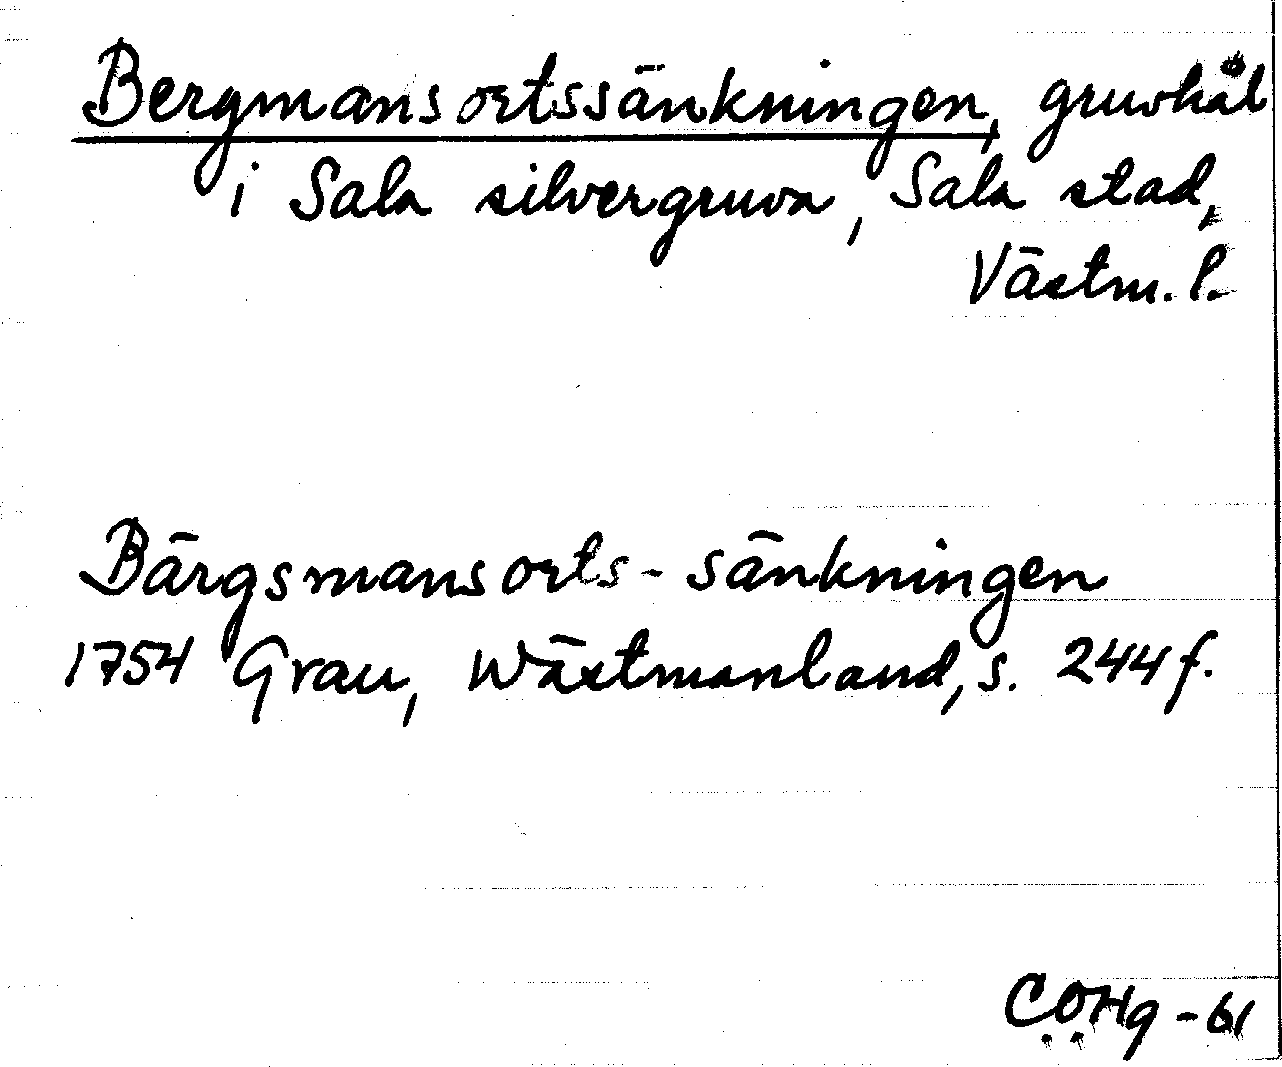 Bergmansortssänkningen, gruvhål
i Sala silvergruva, Sala stad,
Västm. l.
Bärgsmansorts-sänkningen
1754 Grau, Wästmanland, s. 244 f.
CÖHg -61